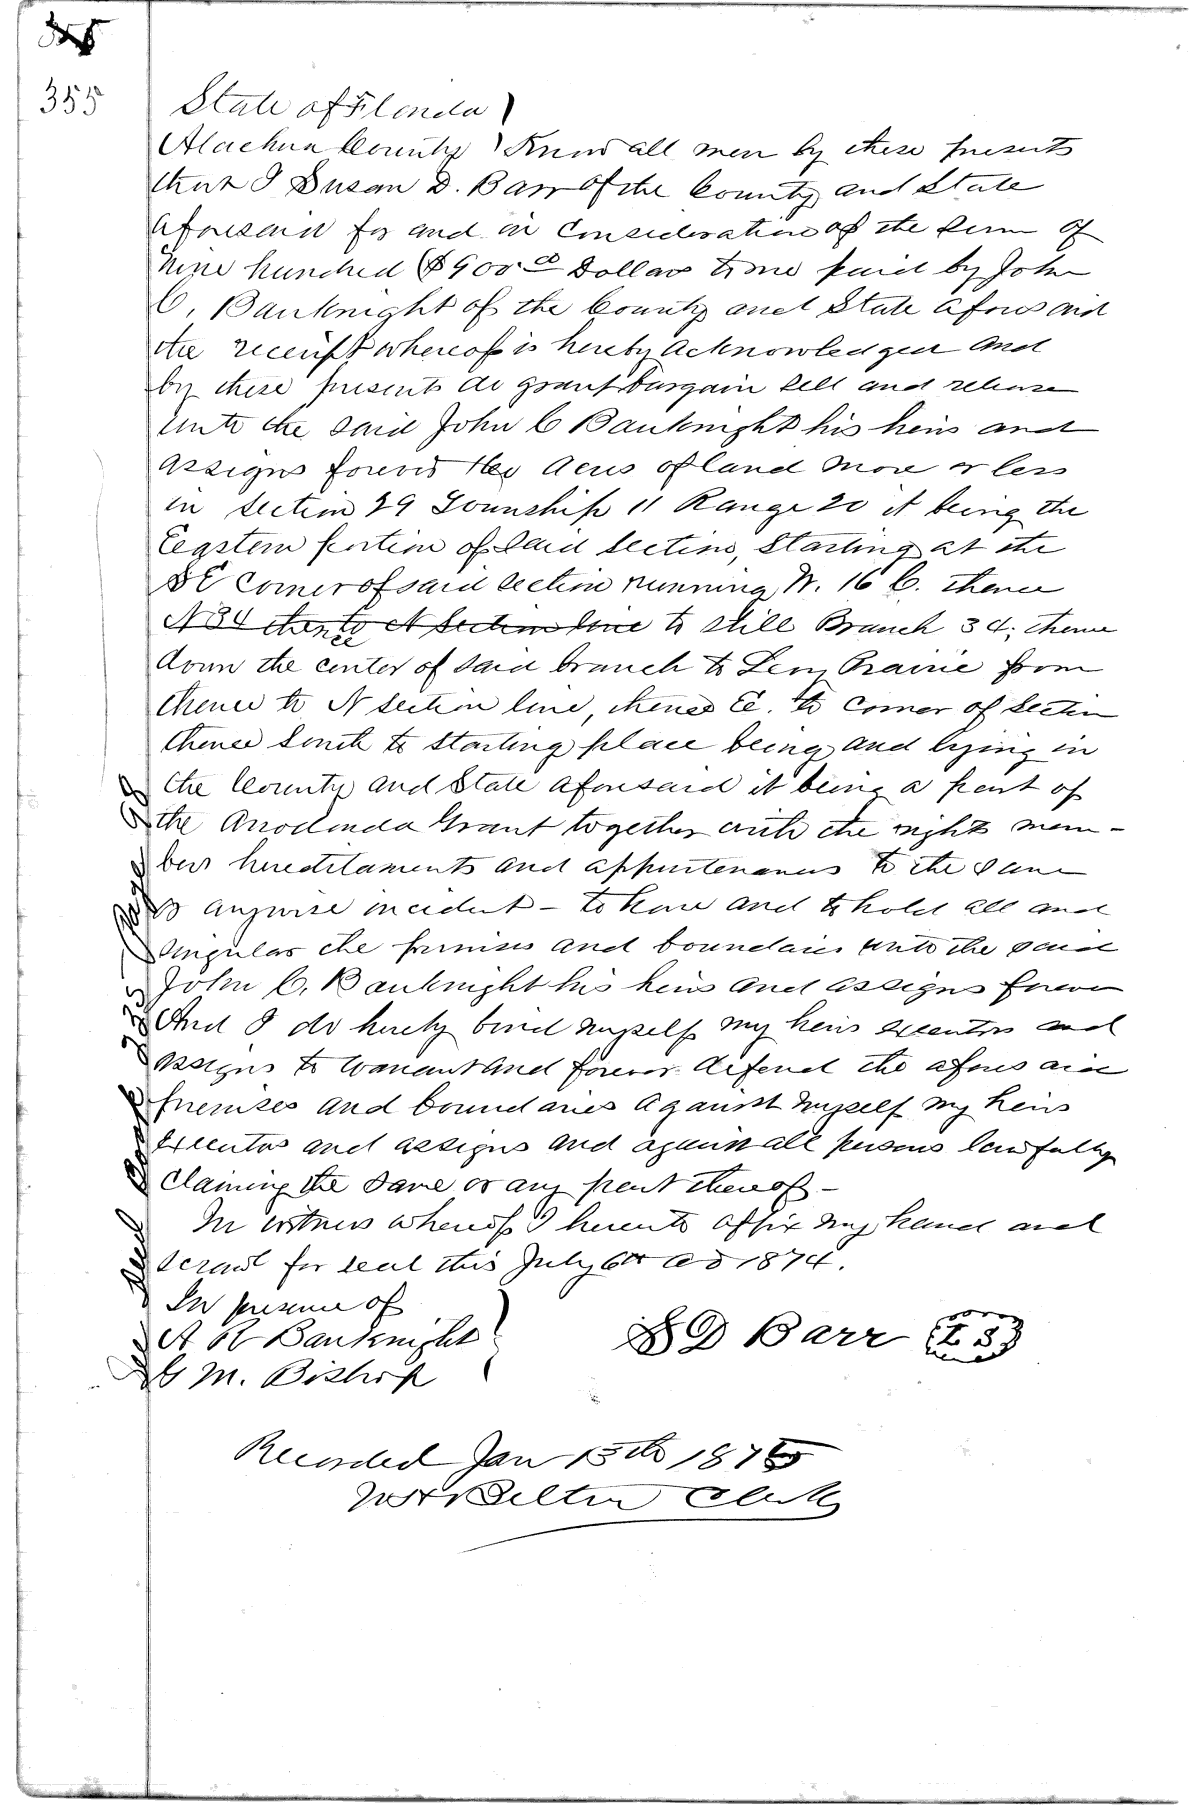 355
State of Florida )
Alachua County ) Know all men by these presents
that I Susan D. Barr of the County and State
aforesaid for and in Consideration of the sum of
Nine hundred ($900 Dollars to me paid by John
C. Bauknight of the County and State aforesaid
the receipt whereof is hereby acknowledged and
by these presents do grant bargain sell and release
unto the said John C Bauknight his heirs and
assigns forever acres of land more or less
in section 29 Township 11 Range 20 it being the
Eastern portion of said section, Starting at the
S E Corner of said section running W. 16 C. thence
N 34 thence to N Section line to still Branch 34; thence
down the center of said branch to Levy Prairie from
thence to N section line, thence E. to corner of section
thence South to starting place being and lying in
the County and State aforesaid it being a part of
the Arredondo Grant together with the rights mem-
bers hereditaments and appurtenances to the same
anywise incident - to have and to hold all and
singular the premises and boundaries unto the said
John C. Bauknight his heirs and assigns forever
And I do hereby bind myself my heirs executors and
assigns to warrant and forever defend the aforesaid
premises and boundaries against myself my heirs
executors and assigns and against all persons lawfully
claiming the same or any part thereof -
In witness whereof I hereunto affix my hand and
scrawl for seal this July 6th AD 1874.
In presence of
A R Bauknight
G M. Bishop
S D Barr (L S)
Recorded Jan 15th 1875
W H Belton Clerk
See Deed Book 235 Page 98